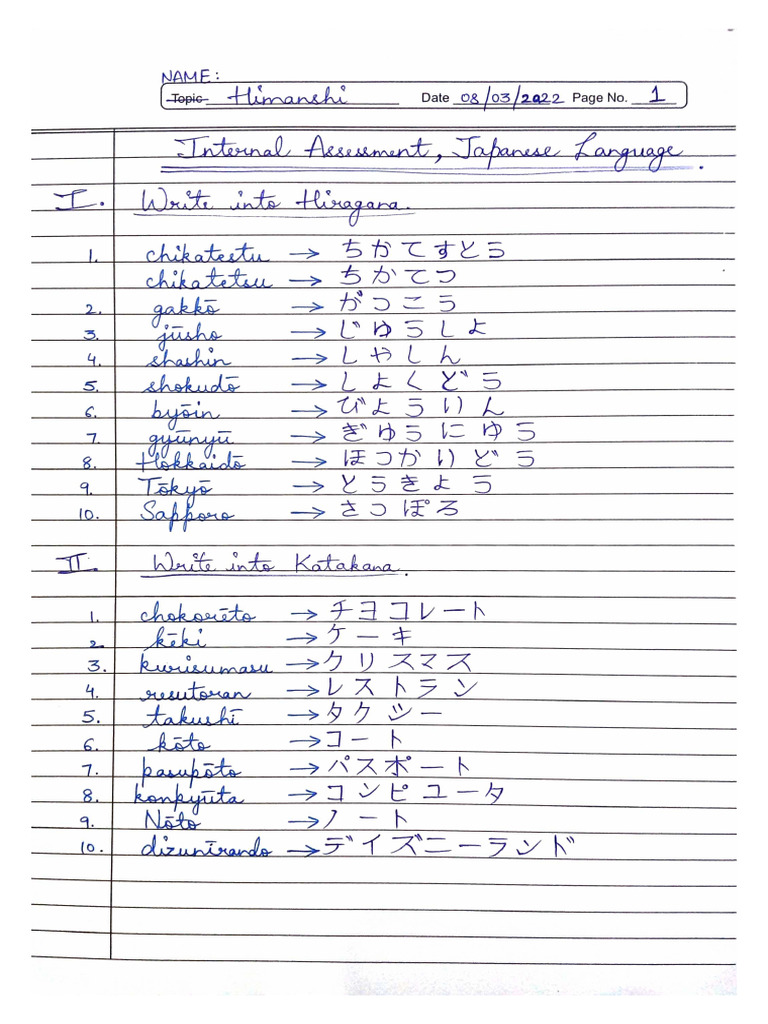 NAME:
Topic Himanshi Date 08/03/2022 Page No. 1
Internal Assessment, Japanese Language.
I. Write into Hiragana.
1. chikatestu → ちかてすとう
chikatetsu → ちかてつ
2. gakkō → がつこう
3. jūsho → じゆうしよ
4. shashin → しやしん
5. shokudō → しよくどう
6. byōin → びよういん
7. gyūnyū → ぎゆうにゆう
8. Hokkaidō → ほつかいどう
9. Tōkyō → とうきよう
10. Sapporo → さつぽろ
II. Write into Katakana.
1. chokorēto → チヨコレート
2. kēki → ケーキ
3. kurisumasu → クリスマス
4. resutoran → レストラン
5. takushī → タクシー
6. kōto → コート
7. pasupōto → パスポート
8. konpyūta → コンピユータ
9. Nōto → ノート
10. dizunīrando → デイズニーランド